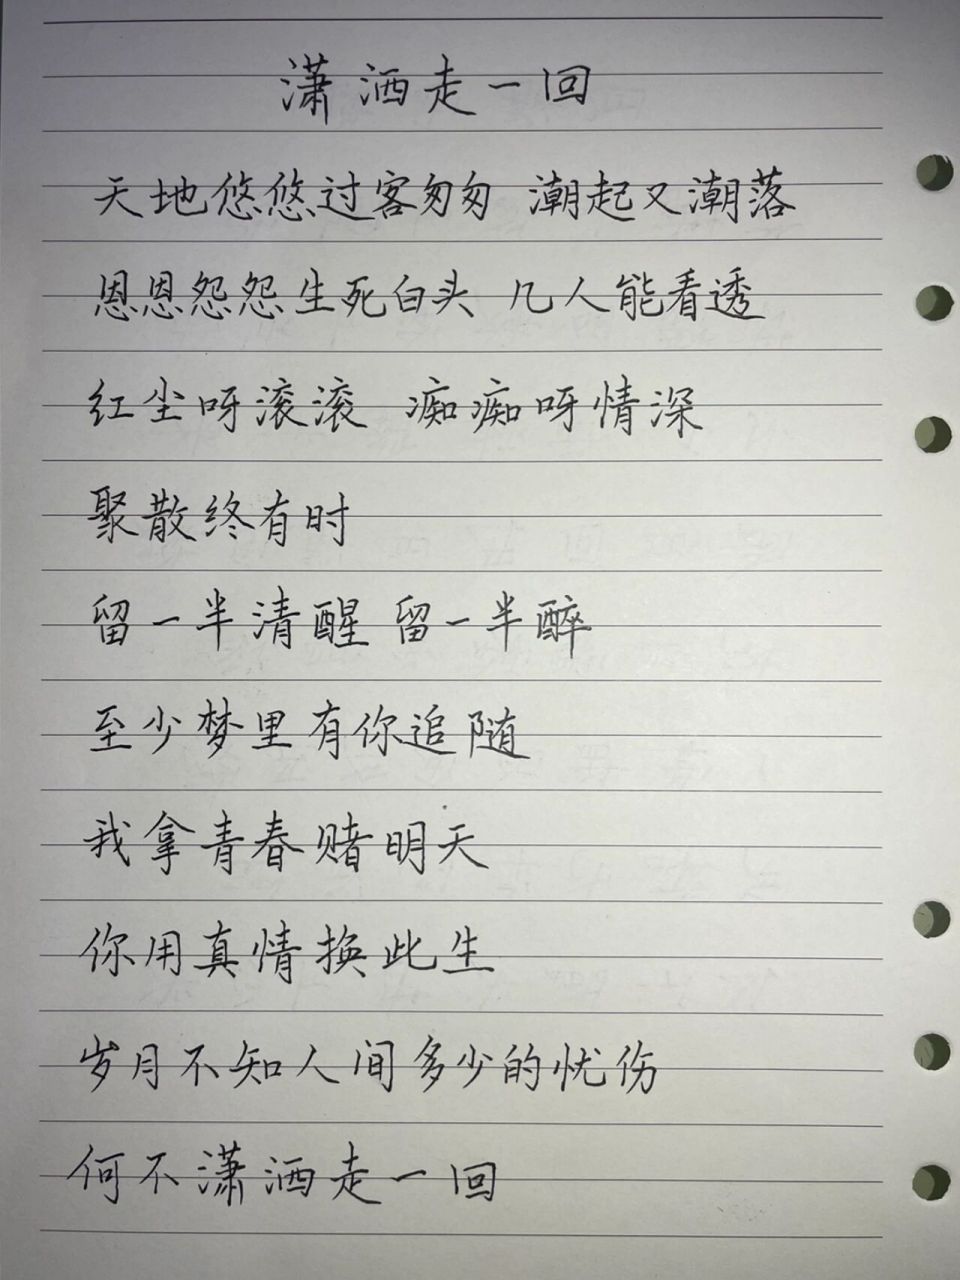 潇洒走一回
天地悠悠过客匆匆 潮起又潮落
恩恩怨怨生死白头 几人能看透
红尘呀滚滚 痴痴呀情深
聚散终有时
留一半清醒 留一半醉
至少梦里有你追随
我拿青春赌明天
你用真情换此生
岁月不知人间多少的忧伤
何不潇洒走一回